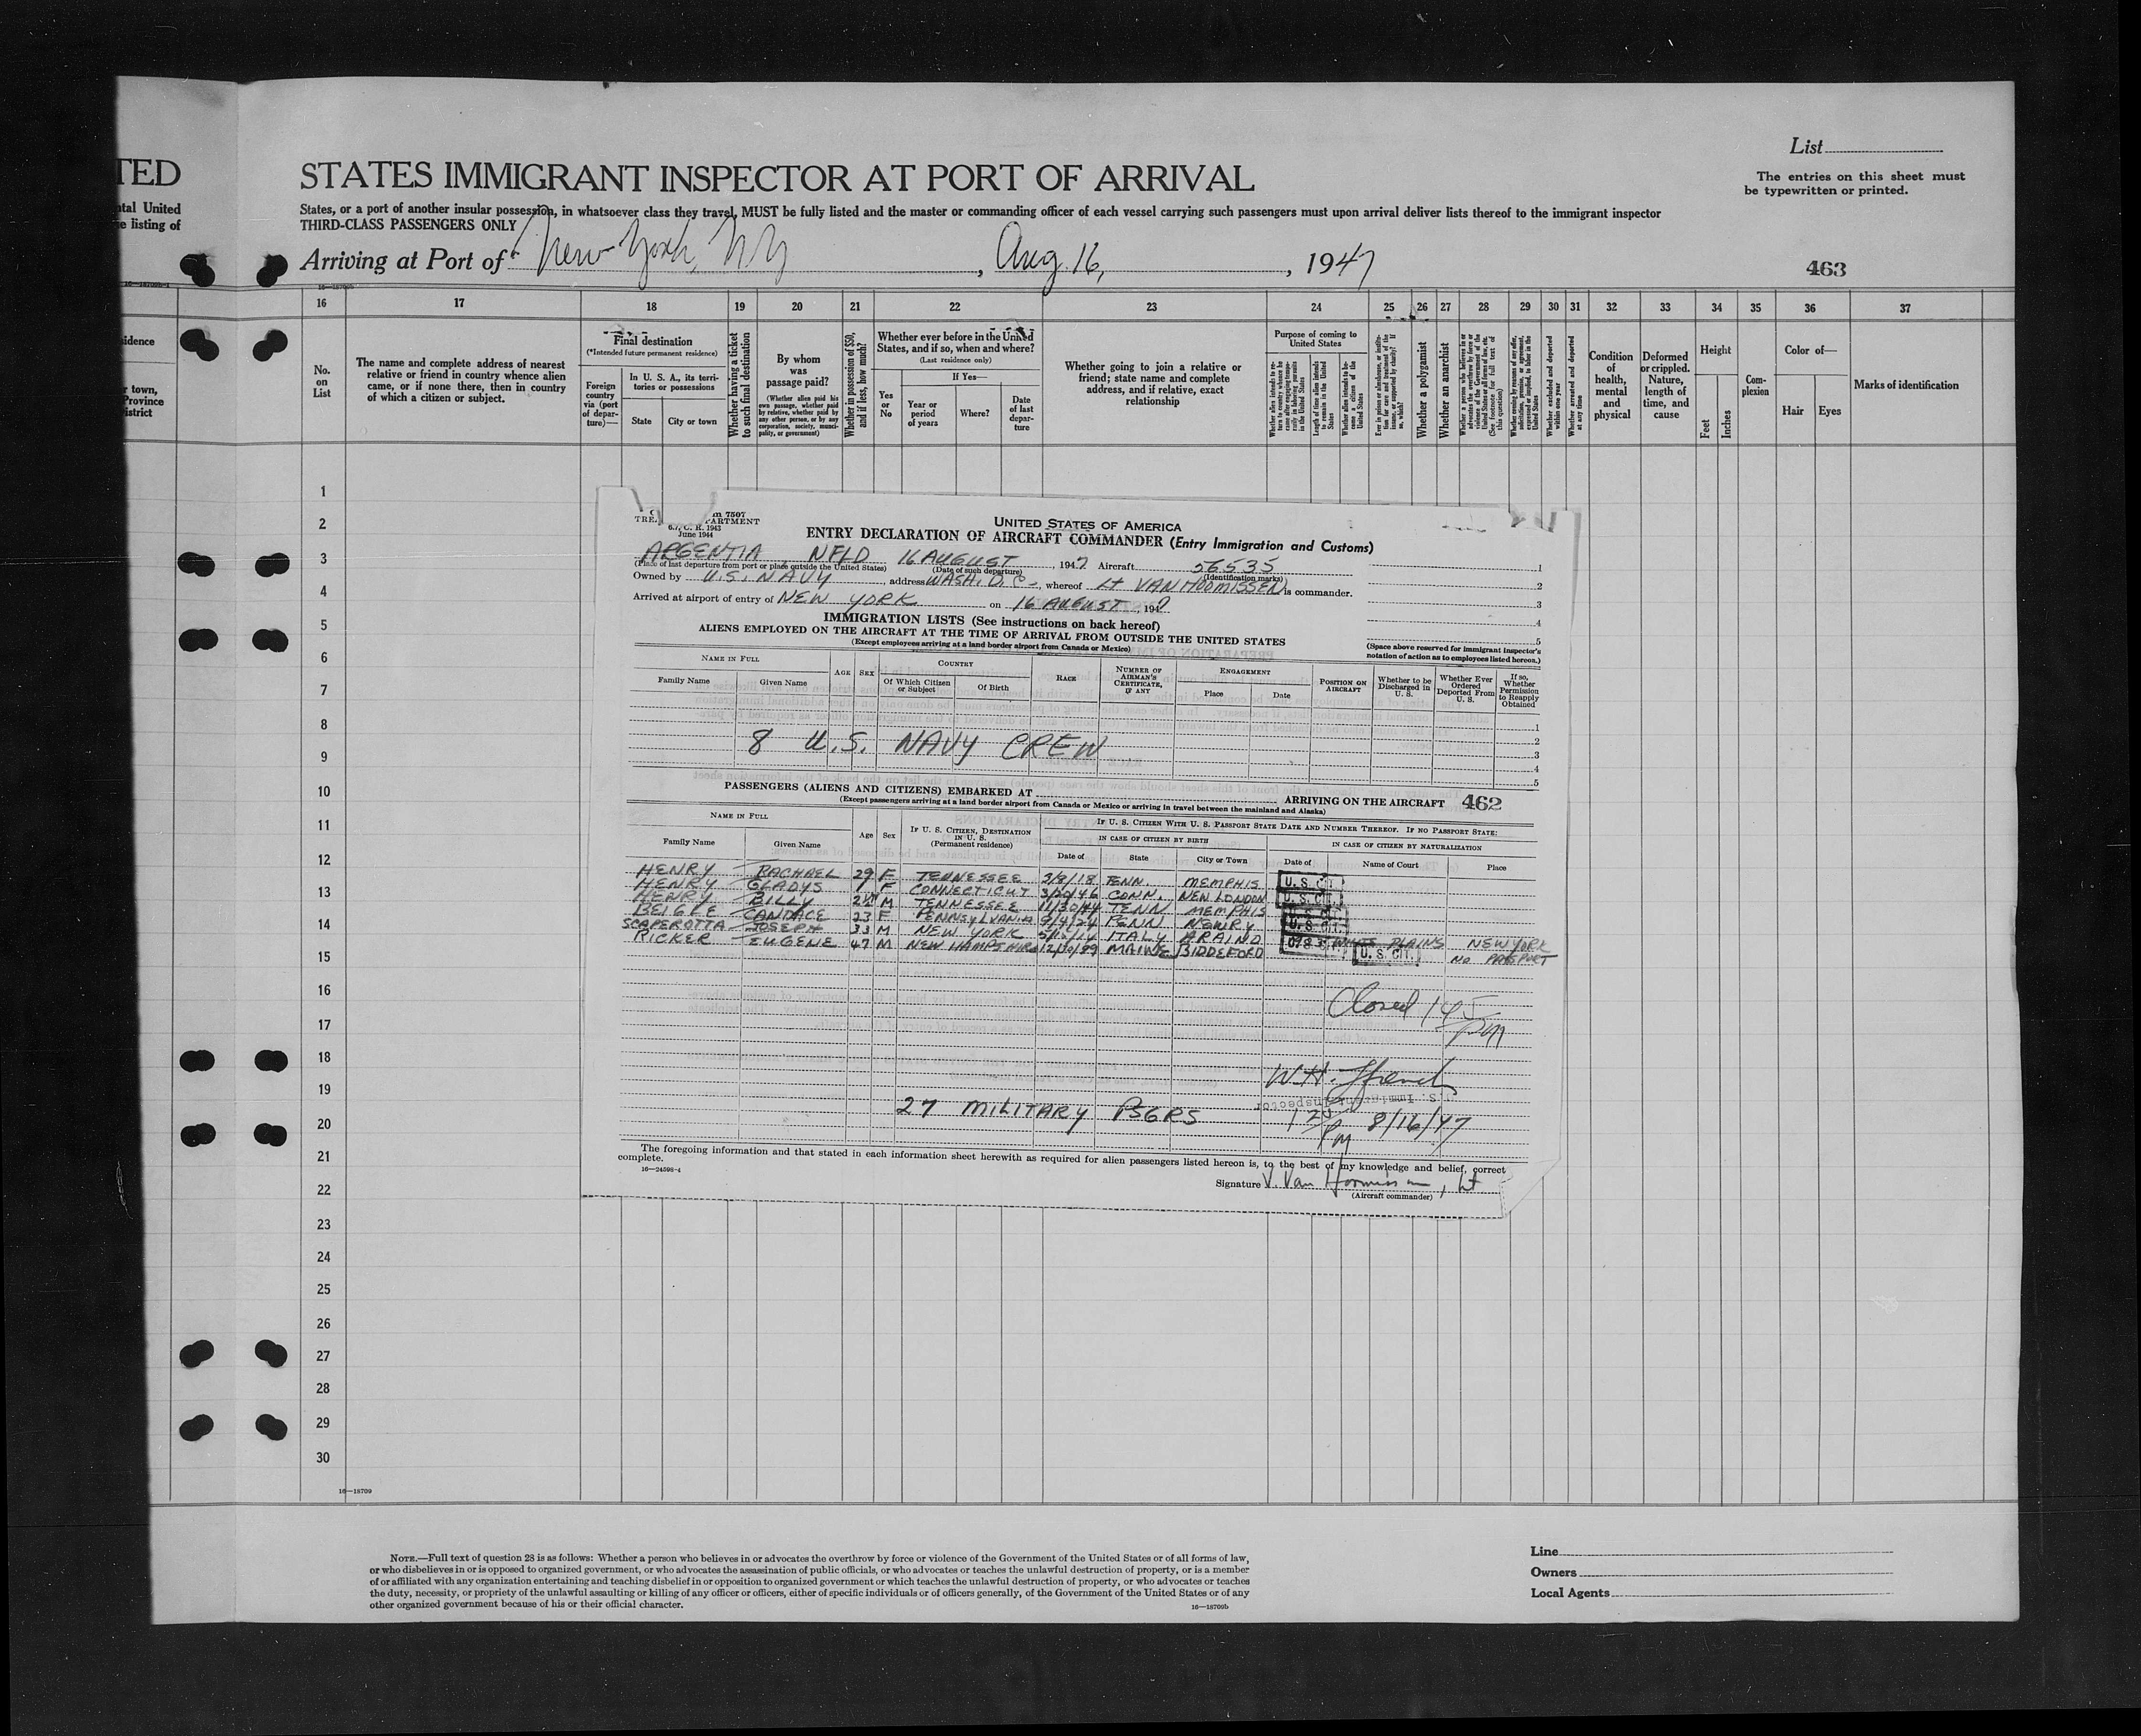 TED
STATES IMMIGRANT INSPECTOR AT PORT OF ARRIVAL
List
The entries on this sheet must
be typewritten or printed.
ntal United
e listing of
States, or a port of another insular possession, in whatsoever class they travel, MUST be fully listed and the master or commanding officer of each vessel carrying such passengers must upon arrival deliver lists thereof to the immigrant inspector
THIRD-CLASS PASSENGERS ONLY
Arriving at Port of New York, NY, Aug. 16, 1947
463
16 17 18 19 20 21 22 23 24 25 26 27 28 29 30 31 32 33 34 35 36 37
idence
r town,
Province
istrict
No. on List
The name and complete address of nearest relative or friend in country whence alien came, or if none there, then in country of which a citizen or subject.
Final destination
(*Intended future permanent residence)
Foreign country via (port of departure)—
In U. S. A., its territories or possessions
State
City or town
Whether having a ticket to such final destination
By whom was passage paid?
(Whether alien paid his own passage, whether paid by relative, whether paid by any other person, or by any corporation, society, municipality, or government)
Whether in possession of $50, and if less, how much?
Whether ever before in the United States, and if so, when and where?
(Last residence only)
Yes or No
If Yes—
Year or period of years
Where?
Date of last departure
Whether going to join a relative or friend; state name and complete address, and if relative, exact relationship
Purpose of coming to United States
Length of time alien intends to remain in the United States
Whether alien intends to become a citizen of the United States
Whether a polygamist
Whether an anarchist
Whether excluded and deported within one year
Whether arrested and deported at any time
Condition of health, mental and physical
Deformed or crippled. Nature, length of time, and cause
Height
Feet
Inches
Complexion
Color of—
Hair
Eyes
Marks of identification
1
2
3
4
5
6
7
8
9
10
11
12
13
14
15
16
17
18
19
20
21
22
23
24
25
26
27
28
29
30
m 7507
June 1944
UNITED STATES OF AMERICA
ENTRY DECLARATION OF AIRCRAFT COMMANDER (Entry Immigration and Customs)
ARGENTIA NFLD 16 AUGUST, 1947 Aircraft 56535
(Place of last departure from port or place outside the United States) (Date of such departure) (Identification marks)
Owned by U.S. NAVY, address WASH. D.C., whereof Lt VAN HOOMISSEN is commander.
Arrived at airport of entry of NEW YORK on 16 AUGUST, 1947
IMMIGRATION LISTS (See instructions on back hereof)
ALIENS EMPLOYED ON THE AIRCRAFT AT THE TIME OF ARRIVAL FROM OUTSIDE THE UNITED STATES
(Except employees arriving at a land border airport from Canada or Mexico)
1
2
3
4
5
(Space above reserved for immigrant inspector's notation of action as to employees listed hereon.)
NAME IN FULL
Family Name
Given Name
AGE
SEX
COUNTRY
Of Which Citizen or Subject
Of Birth
RACE
NUMBER OF AIRMAN'S CERTIFICATE, IF ANY
ENGAGEMENT
Place
Date
POSITION ON AIRCRAFT
Whether to be Discharged in U. S.
Whether Ever Ordered Deported From U. S.
If so, Whether Permission to Reapply Obtained
1
2
3
4
5
8 U.S. NAVY CREW
PASSENGERS (ALIENS AND CITIZENS) EMBARKED AT ARRIVING ON THE AIRCRAFT 462
(Except passengers arriving at a land border airport from Canada or Mexico or arriving in travel between the mainland and Alaska)
NAME IN FULL
Family Name
Given Name
Age
Sex
IF U. S. CITIZEN, DESTINATION IN U. S. (Permanent residence)
IF U. S. CITIZEN WITH U. S. PASSPORT STATE DATE AND NUMBER THEREOF. IF NO PASSPORT STATE:
IN CASE OF CITIZEN BY BIRTH
Date of
State
City or Town
IN CASE OF CITIZEN BY NATURALIZATION
Date of
Name of Court
Place
HENRY RACHAEL 29 F TENNESSEE 3/8/18 TENN. MEMPHIS U. S. CIT.
HENRY GLADYS 1 F CONNECTICUT 3/20/46 CONN. NEW LONDON U. S. CIT.
HENRY BILLY 2½ M TENNESSEE 11/30/44 TENN MEMPHIS U. S. CIT.
BEIGLE CANDACE 23 F PENNSYLVANIA 5/4/24 PENN NEWRY U. S. CIT.
SCAPEROTTA JOSEPH 33 M NEW YORK ITALY PLAINS NEW YORK
RICKER EUGENE 47 M NEW HAMPSHIRE 12/30/99 MAINE BIDDEFORD U. S. CIT. NO PASSPORT
Closed 145 PM
W.H. Ffrench
U.S. Immigrant Inspector
27 MILITARY PSGRS
125 PM 8/16/47
The foregoing information and that stated in each information sheet herewith as required for alien passengers listed hereon is, to the best of my knowledge and belief, correct
complete.
16—24598-4
Signature V. Van Hoomissen, Lt
(Aircraft commander)
16—18709
NOTE.—Full text of question 28 is as follows: Whether a person who believes in or advocates the overthrow by force or violence of the Government of the United States or of all forms of law,
or who disbelieves in or is opposed to organized government, or who advocates the assassination of public officials, or who advocates or teaches the unlawful destruction of property, or is a member
of or affiliated with any organization entertaining and teaching disbelief in or opposition to organized government or which teaches the unlawful destruction of property, or who advocates or teaches
the duty, necessity, or propriety of the unlawful assaulting or killing of any officer or officers, either of specific individuals or of officers generally, of the Government of the United States or of any
other organized government because of his or their official character.
16—18709b
Line
Owners
Local Agents